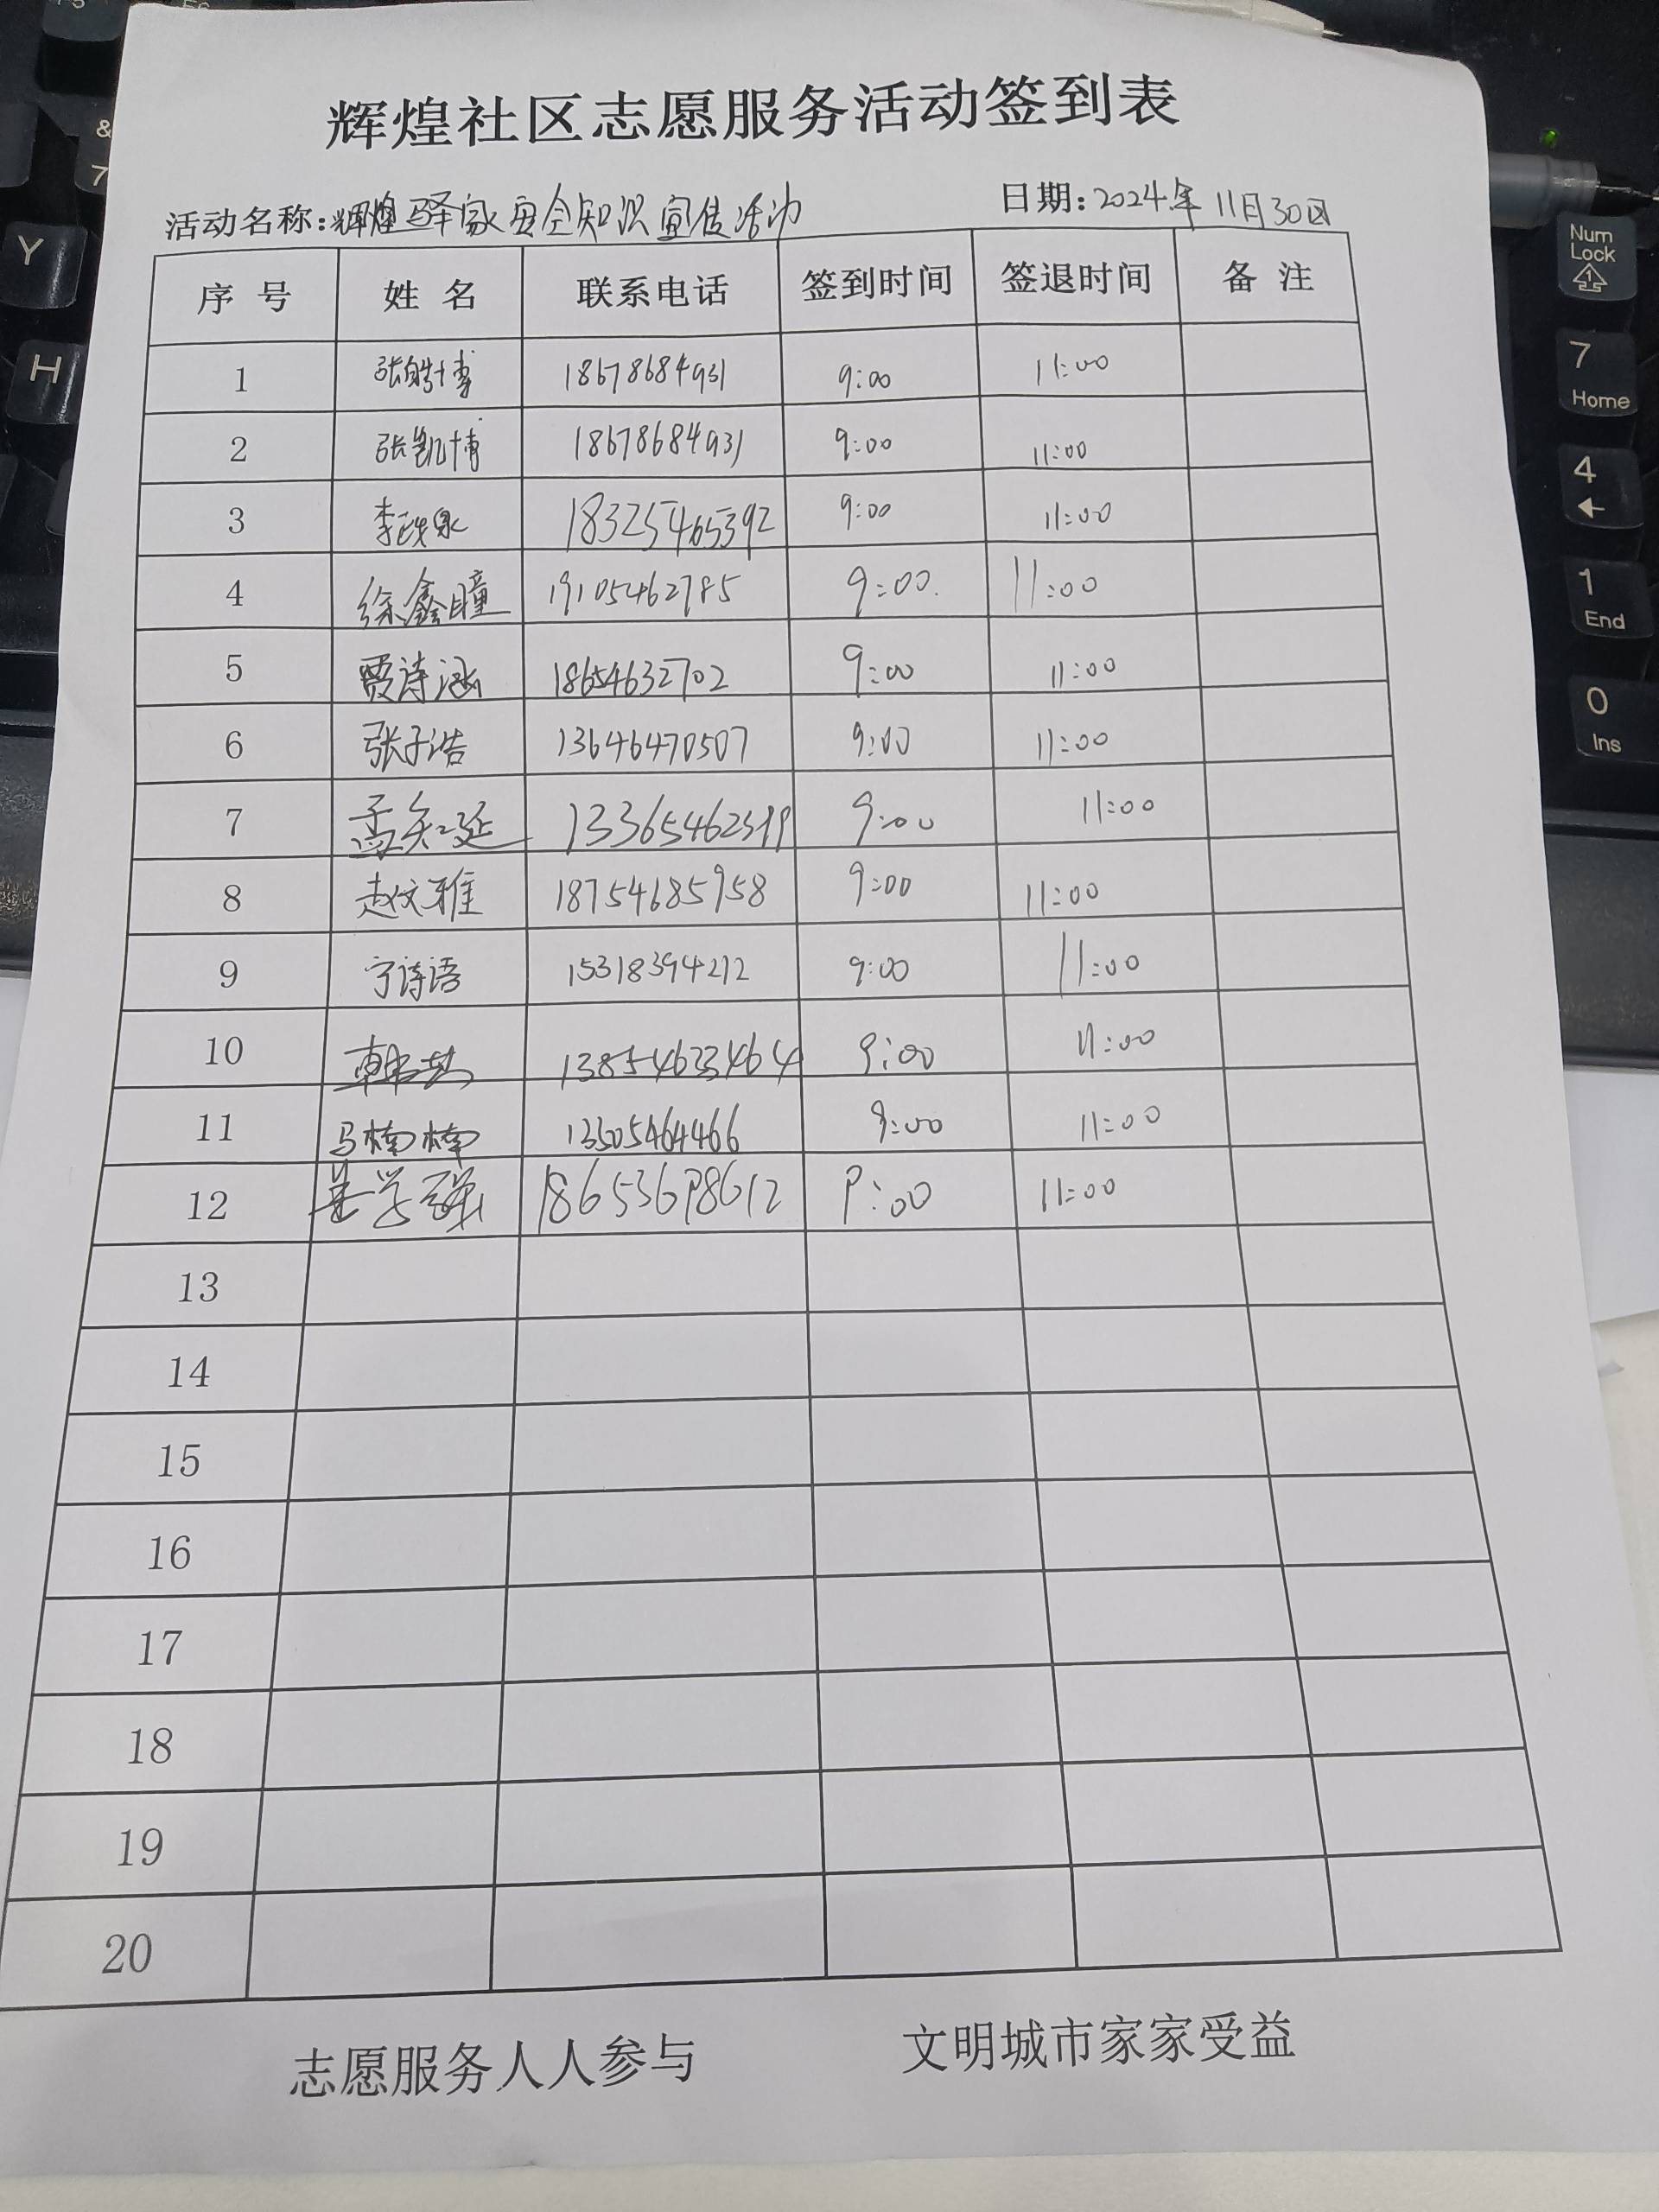 辉煌社区志愿服务活动签到表
活动名称:辉煌驿家安全知识宣传活动 日期:2024年11月30日
序号 姓名 联系电话 签到时间 签退时间 备注
1 张皓博 18678684931 9:00 11:00
2 张凯博 18678684931 9:00 11:00
3 李政泉 18325465392 9:00 11:00
4 徐鑫瞳 19105462785 9:00. 11:00
5 贾诗涵 18654632702 9:00 11:00
6 张子浩 13646470507 9:00 11:00
7 孟矣延 9:00 11:00
8 赵文雅 18754685958 9:00 11:00
9 宁诗语 15318394212 9:00 11:00
10 韩 13854623464 9:00 11:00
11 马楠楠 13505464466 9:00 11:00
12 9:00 11:00
13
14
15
16
17
18
19
20
志愿服务人人参与 文明城市家家受益
Num
Lock
7
Home
4
1
End
0
Ins
&
7
Y
H